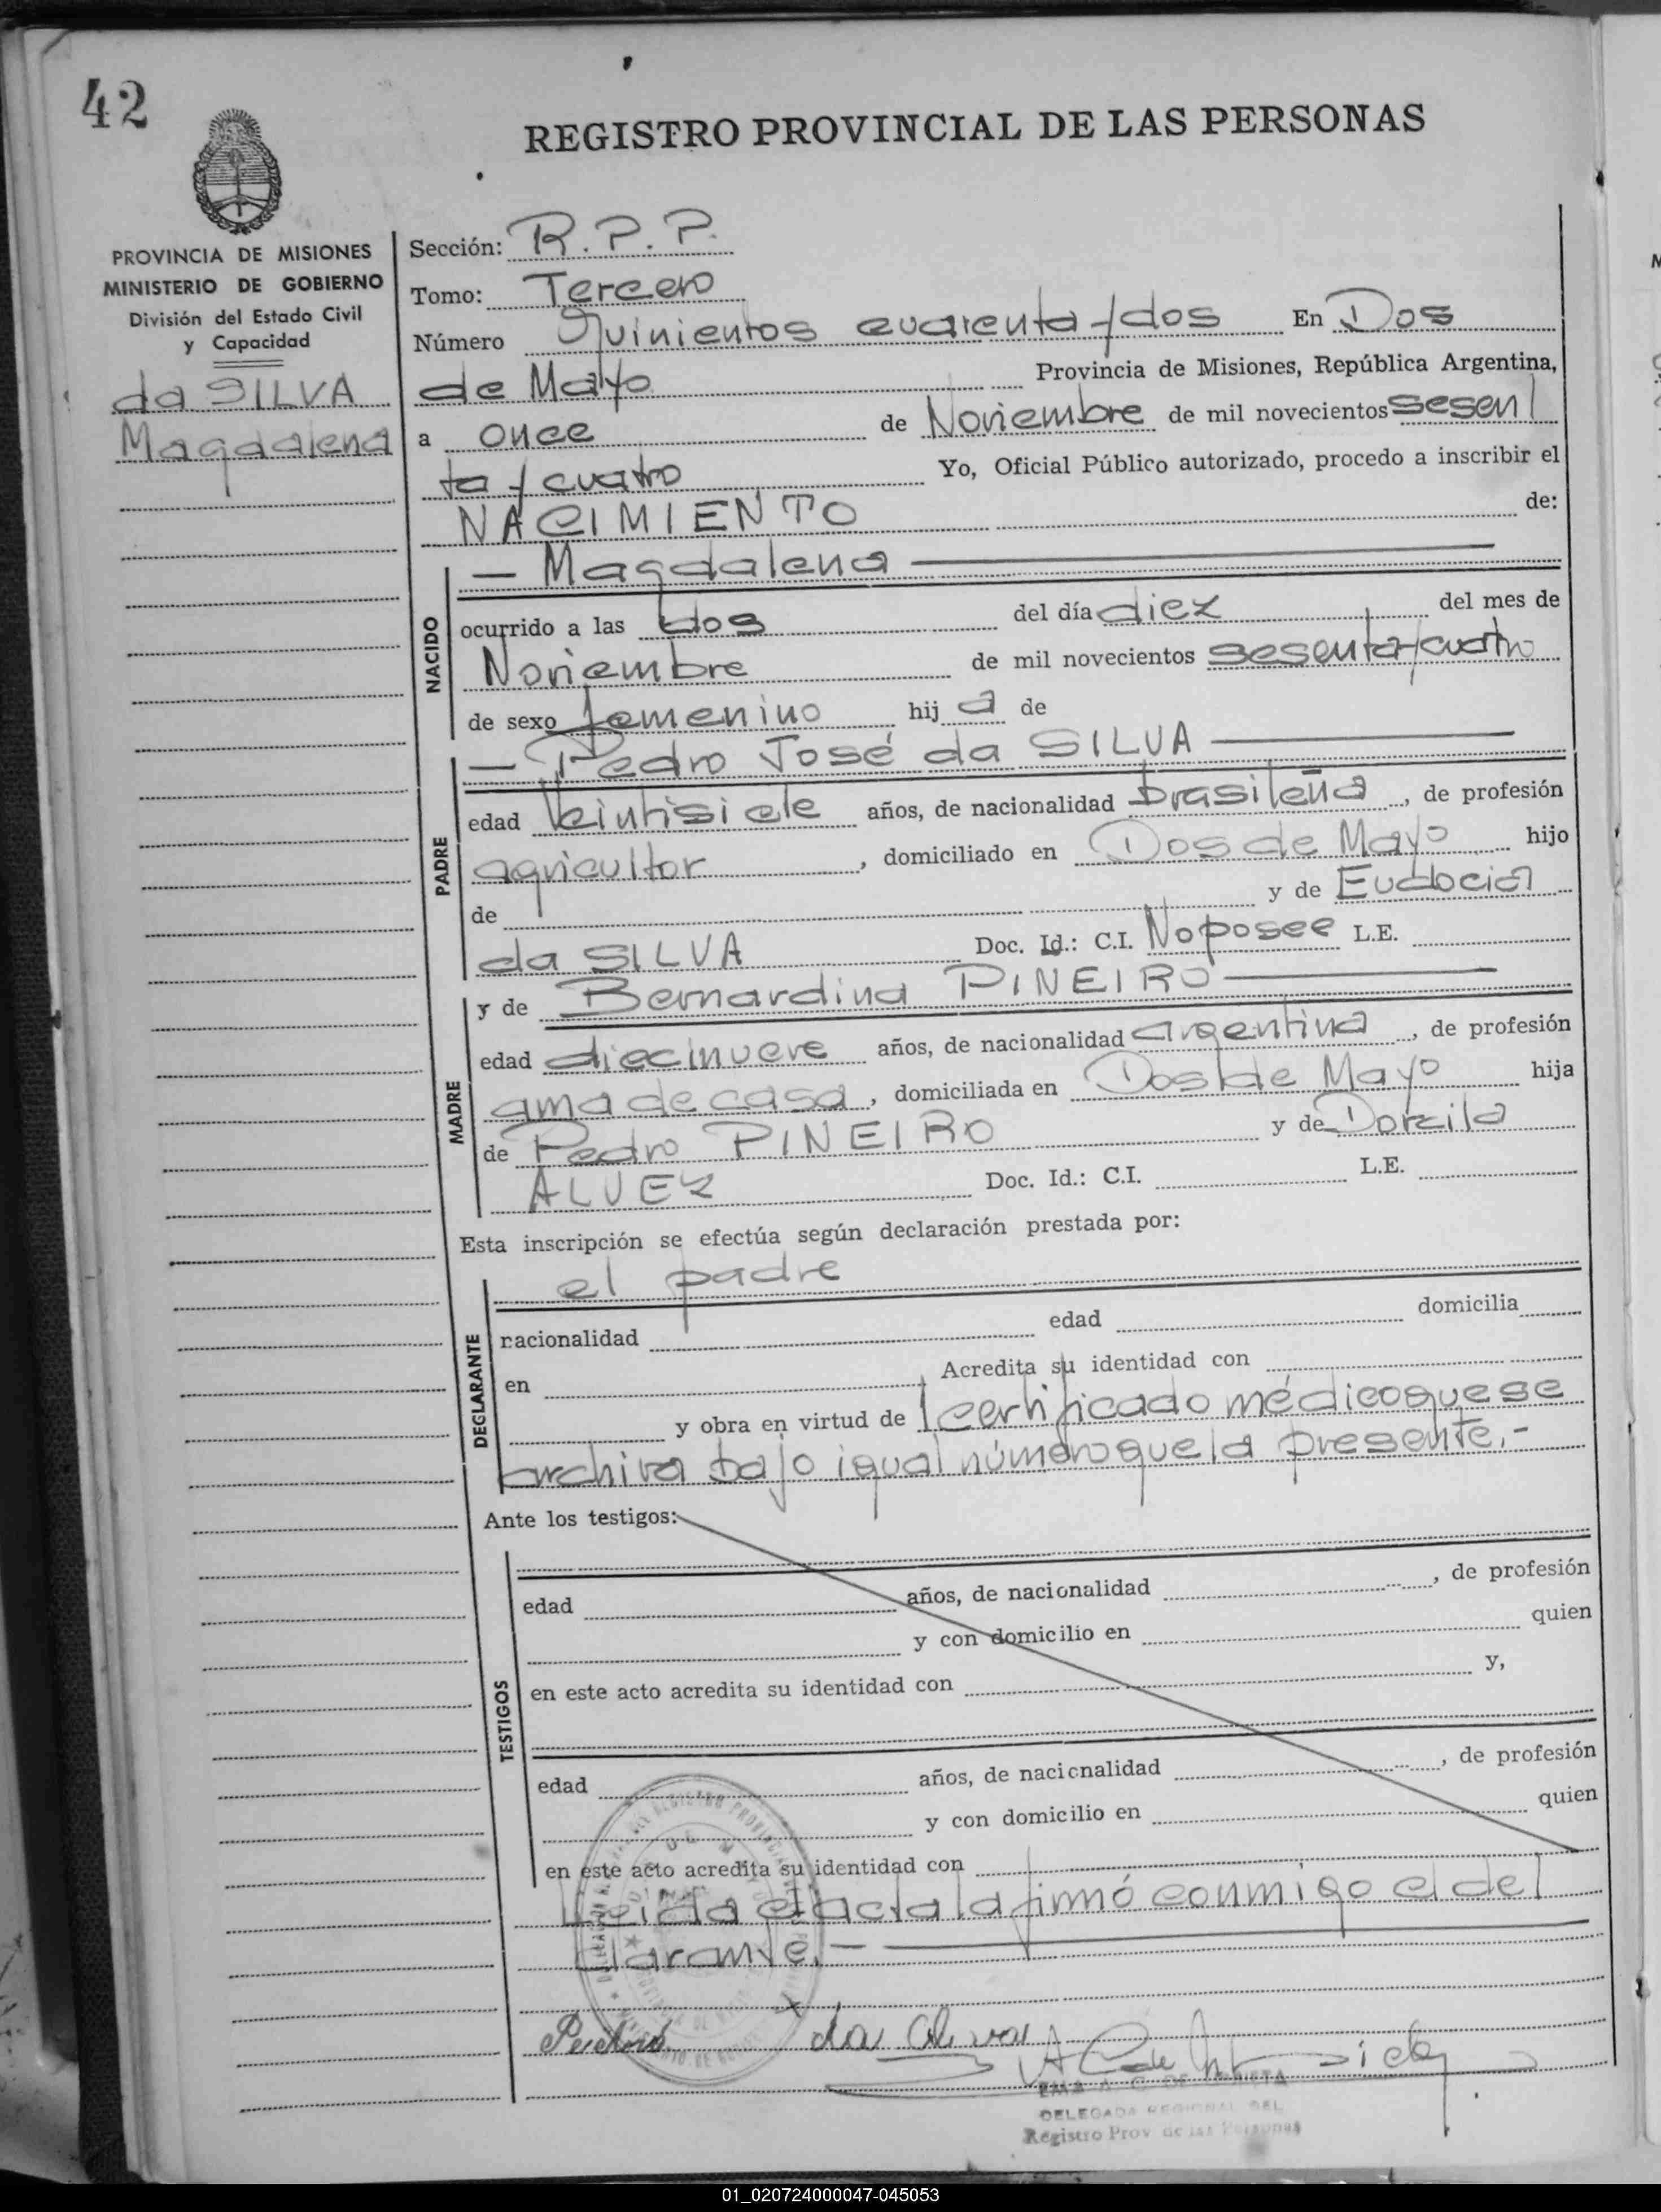 42
REGISTRO PROVINCIAL DE LAS PERSONAS
PROVINCIA DE MISIONES
MINISTERIO DE GOBIERNO
División del Estado Civil
y Capacidad
da SILVA
Magdalena
Sección: R.P.P.
Tomo: Tercero
Número Quinientos cuarenta y dos En Dos
de Mayo Provincia de Misiones, República Argentina,
a once de Noviembre de mil novecientos sesen
ta y cuatro Yo, Oficial Público autorizado, procedo a inscribir el
NACIMIENTO de:
NACIDO
— Magdalena —
ocurrido a las dos del día diez del mes de
Noviembre de mil novecientos sesenta y cuatro
de sexo femenino hij a de
PADRE
— Pedro José da SILVA —
edad veintisiete años, de nacionalidad brasileña, de profesión
agricultor, domiciliado en Dos de Mayo hijo
de y de Eudocia
da SILVA Doc. Id.: C.I. No posee L.E.
MADRE
y de Bernardina PINEIRO —
edad diecinueve años, de nacionalidad argentina, de profesión
ama de casa, domiciliada en Dos de Mayo hija
de Pedro PINEIRO y de Dorcila
ALVEZ Doc. Id.: C.I. L.E.
Esta inscripción se efectúa según declaración prestada por:
DECLARANTE
el padre
nacionalidad edad domicilia
en Acredita su identidad con
y obra en virtud de certificado médico que se
archiva bajo igual número que la presente.-
Ante los testigos:
TESTIGOS
edad años, de nacionalidad, de profesión
y con domicilio en quien
en este acto acredita su identidad con y,
edad años, de nacionalidad, de profesión
y con domicilio en quien
en este acto acredita su identidad con
Leida el acta la firmó conmigo el de
clarante.—
da Silva
DELEGADA REGIONAL DEL
Registro Prov de las Personas
01_020724000047-045053